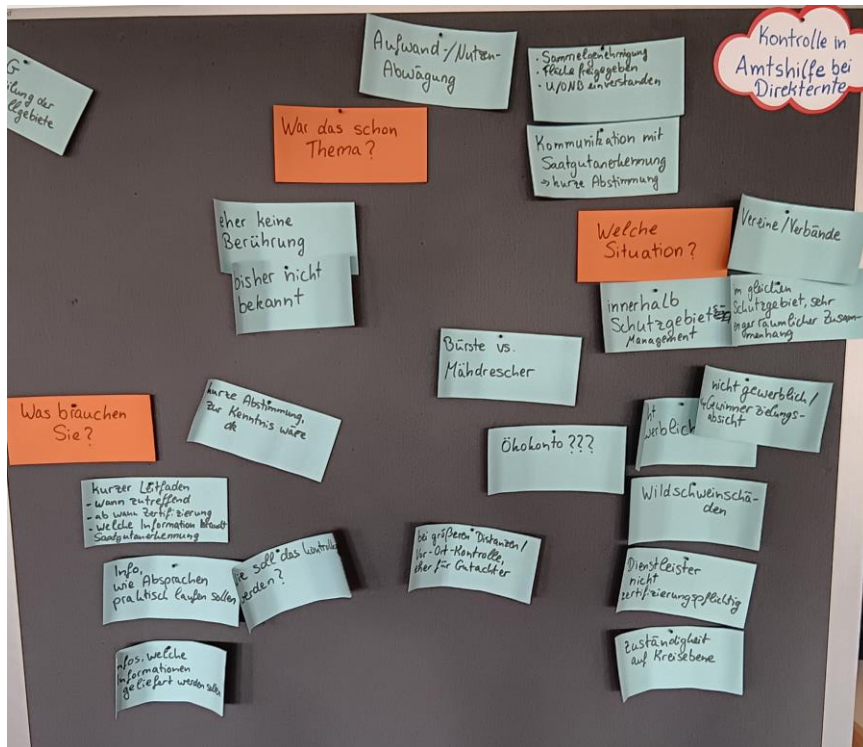 Kontrolle in
Amtshilfe bei
Direkternte
G
ilung der
llgebiete
Aufwand-/Nutzen-
Abwägung
· Sammelgenehmigung
· Fläche freigegeben
· U/ONB einverstanden
War das schon
Thema?
Kommunikation mit
Saatgutanerkennung
→ kurze Abstimmung
eher keine
Berührung
bisher nicht
bekannt
Welche
Situation?
Vereine/Verbände
innerhalb
Schutzgebiet
Management
m gleichen
Schutzgebiet, sehr
enger räumlicher Zusam-
menhang
Bürste vs.
Mähdrescher
Was brauchen
Sie?
kurze Abstimmung,
zur Kenntnis wäre
ok
nicht gewerblich/
Gewinnerzielungs-
absicht
ht
werblich
Ökokonto???
kurzer Leitfaden
- wann zutreffend
- ab wann Zertifizierung
- welche Information braucht
Saatgutanerkennung
Wildschweinschä-
den
Info,
wie Absprachen
praktisch laufen sollen
ie soll das kontrolli
werden?
bei größeren Distanzen/
Vor-Ort-Kontrolle,
eher für Gutachter
Dienstleister
nicht
zertifizierungspflichtig
Infos, welche
Informationen
geliefert werden sollen
Zuständigkeit
auf Kreisebene